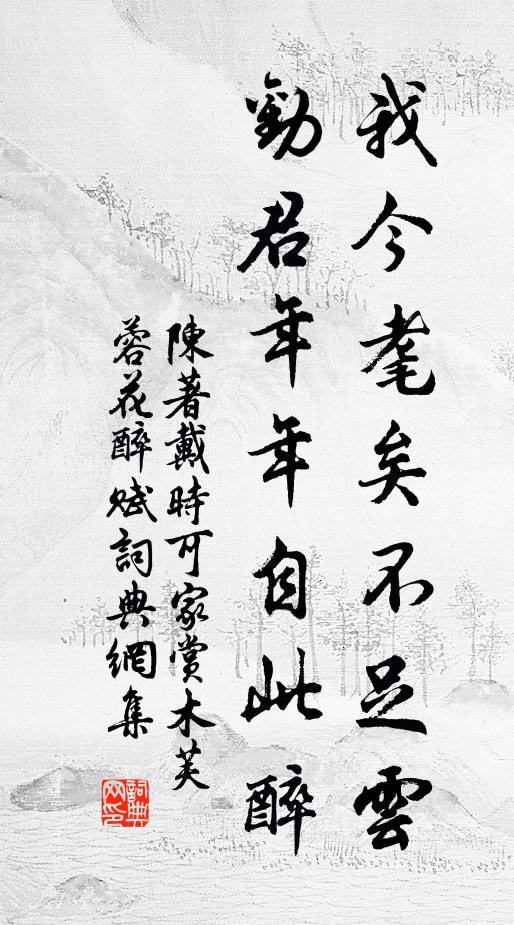 我今耄矣不足雲
勸君年年自此醉
陳著戴時可家賞木芙
蓉花醉賦詞典網集
詞典網印